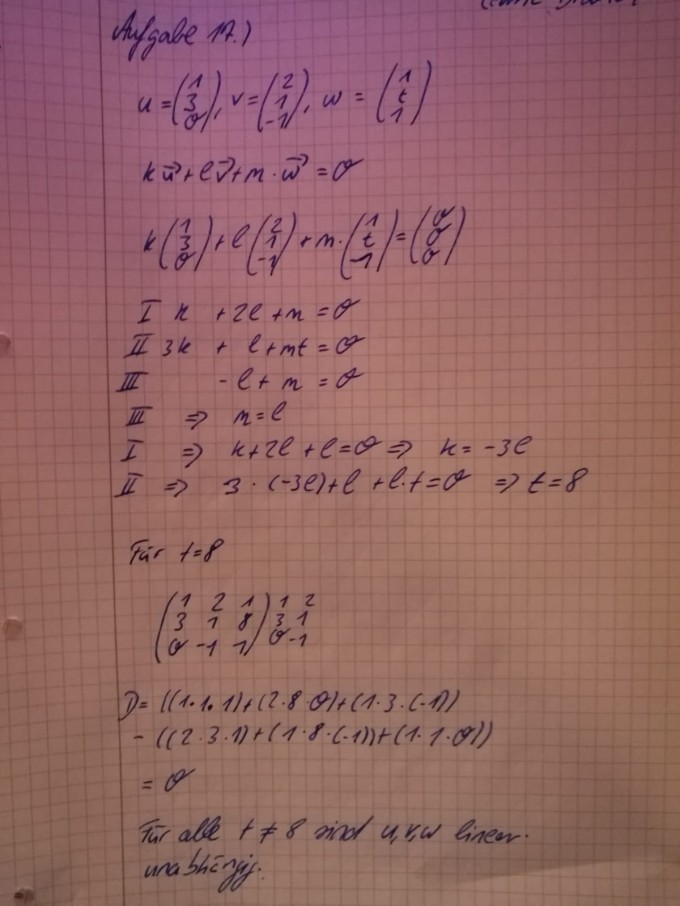 Aufgabe 17.)
u = (1 3 0), v = (2 1 -1), w = (1 t 1)
k u⃗ + l v⃗ + m · w⃗ = 0
k (1 3 0) + l (2 1 -1) + m · (1 t -1) = (0 0 0)
I k + 2l + m = 0
II 3k + l + mt = 0
III - l + m = 0
III ⇒ m = l
I ⇒ k + 2l + l = 0 ⇒ k = -3l
II ⇒ 3 · (-3l) + l + l · t = 0 ⇒ t = 8
Für t = 8
(1 2 1) 1 2
(3 1 8) 3 1
(0 -1 1) 0 -1
D = ((1 · 1 · 1) + (2 · 8 · 0) + (1 · 3 · (-1))
- ((2 · 3 · 1) + (1 · 8 · (-1)) + (1 · 1 · 0))
= 0
Für alle t ≠ 8 sind u, v, w linear
unabhängig.